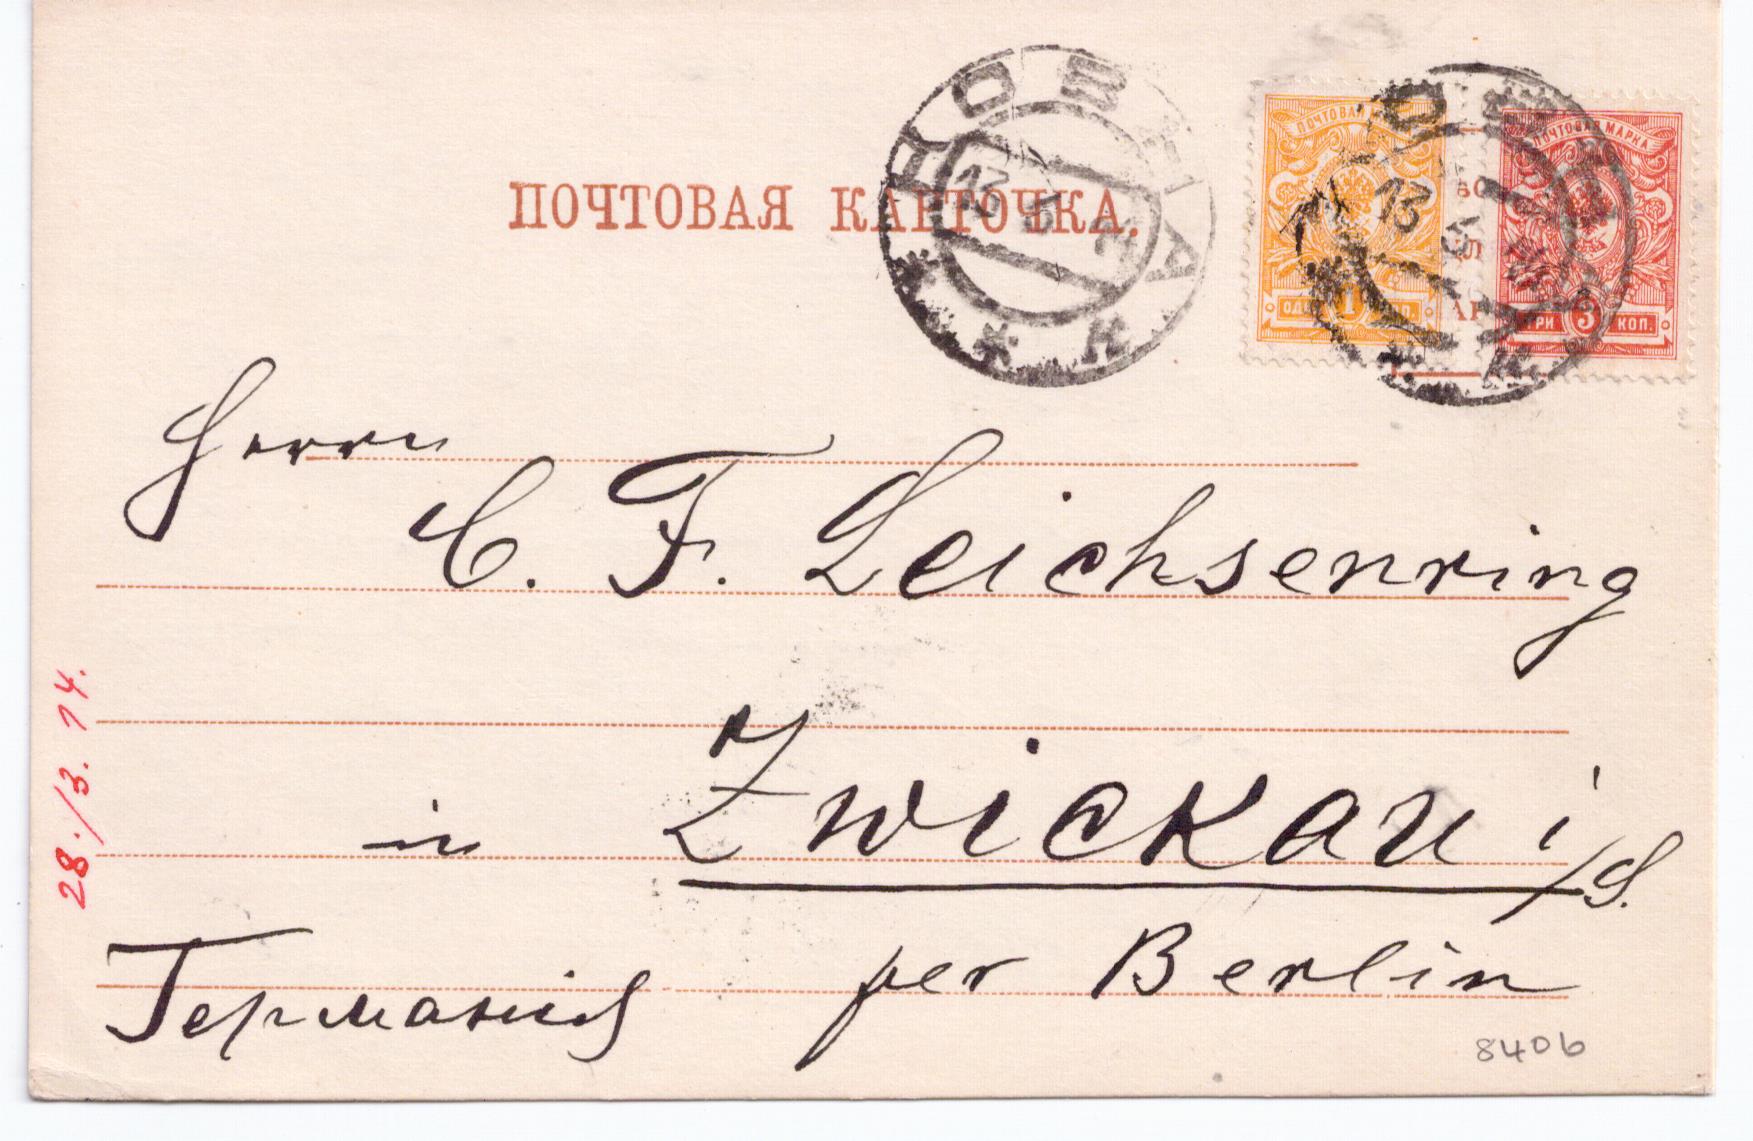 ПОЧТОВАЯ КАРТОЧКА.
КОВНА
13
К
ПОЧТОВАЯ
1
ПОЧТОВАЯ МАРКА
ТРИ 3 КОП.
13
Herrn
C. F. Leichsenring
in Zwickau i/S.
Германія per Berlin
28./3. 14.
8406